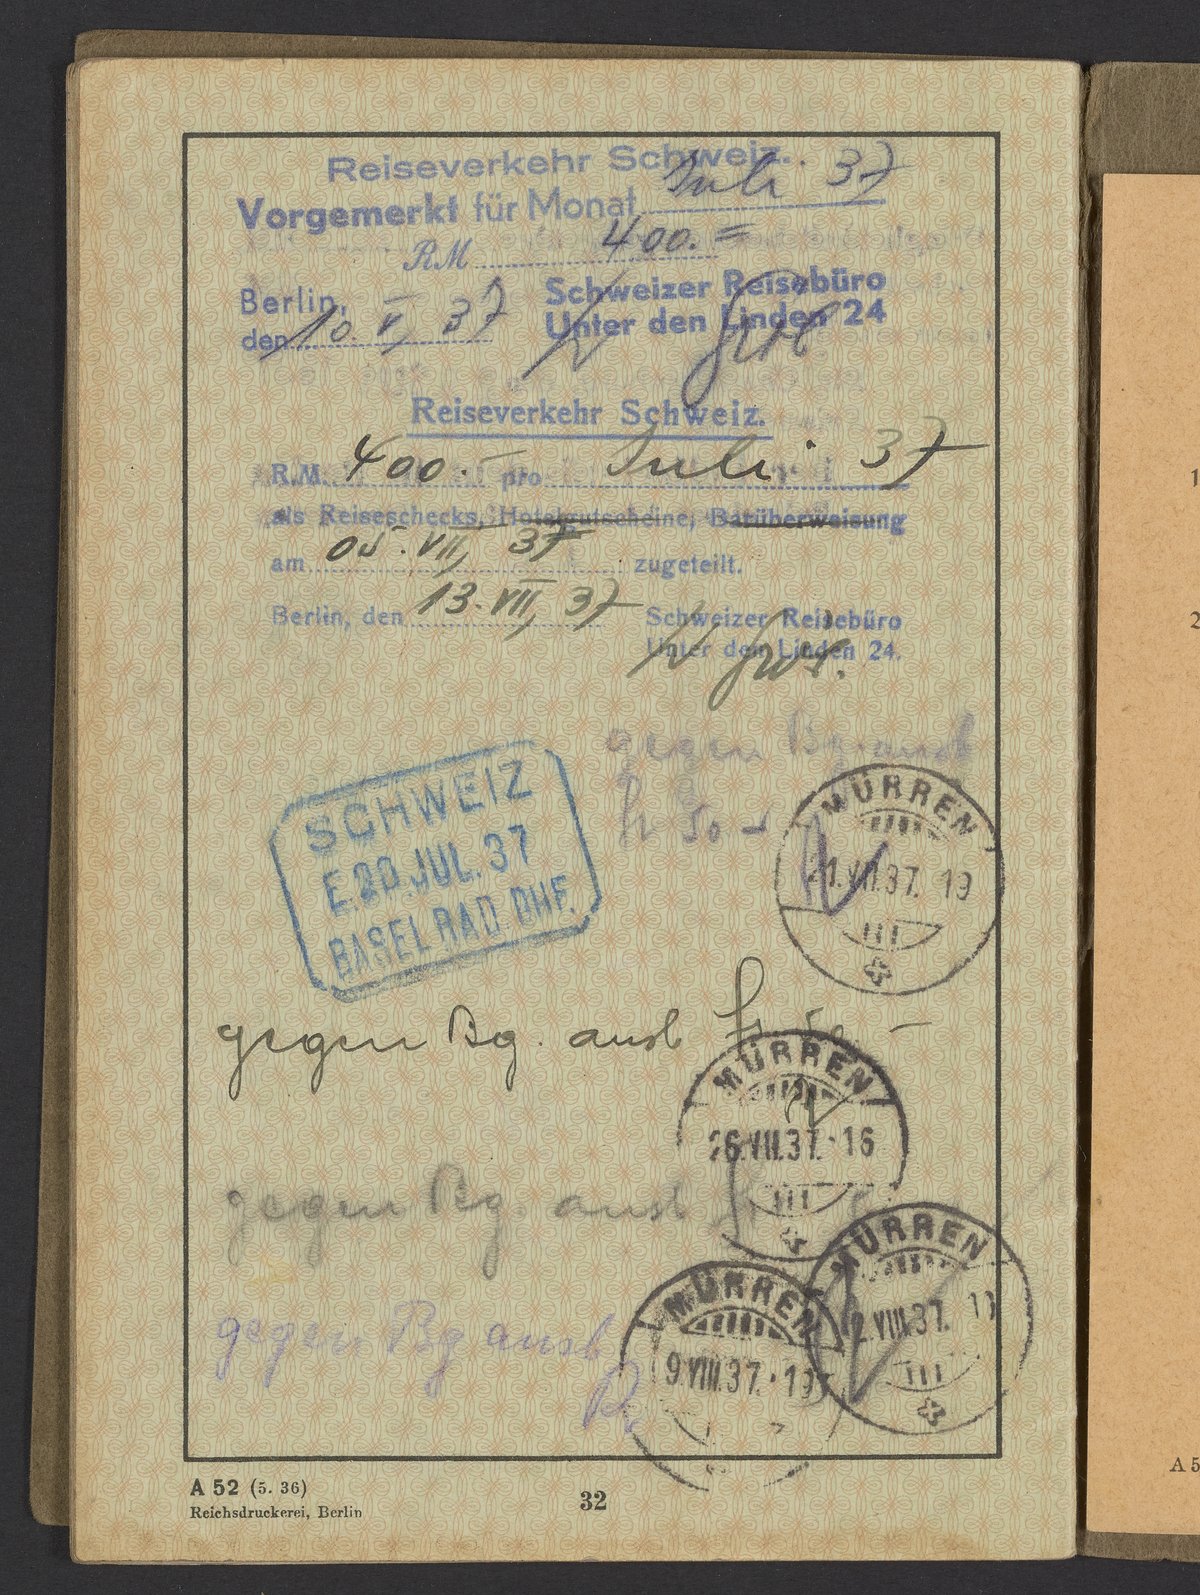 Reiseverkehr Schweiz.
Vorgemerkt für Monat Juli 37
RM 400.=
Berlin, den 10. V, 37
Schweizer Reisebüro
Unter den Linden 24
Reiseverkehr Schweiz.
R.M. 400.- pro Juli 37
als Reiseschecks, Hotelgutscheine, Barüberweisung
am 05. VII, 37 zugeteilt.
Berlin, den 13. VII, 37
Schweizer Reisebüro
Unter den Linden 24.
gegen Bg. ausb
fr 50 -
MÜRREN
21.VII.37. 19
SCHWEIZ
E.20.JUL.37
BASEL BAD BHF.
gegen Bg. ausb fr
MÜRREN
26.VII.37. 16
gegen Bg. ausb
MÜRREN
2.VIII.37.
gegen Bg ausb
MÜRREN
9.VIII.37. 19
A 52 (5. 36)
Reichsdruckerei, Berlin
32
1
2
A 5